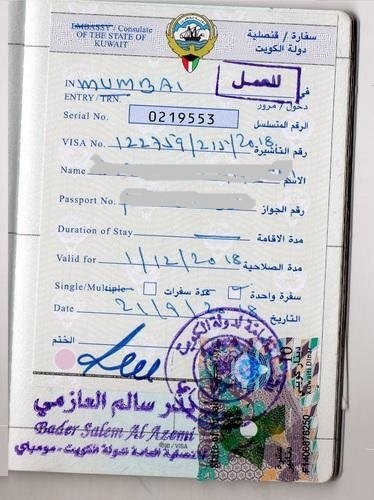 EMBASSY / Consulate سفارة / قنصلية
OF THE STATE OF دولة الكويت
KUWAIT
للعمل
IN MUMBAI في
ENTRY/ TRN. دخول / مرور
Serial No. 0219553 الرقم المتسلسل
VISA No. 122759/215/2018 رقم التأشيرة
Name الاسم
Passport No. رقم الجواز
Duration of Stay مدة الاقامة
Valid for 1/12/2018 مدة الصلاحية
Single/Multiple عدة سفرات سفرة واحدة
Date 21/9/2018 التاريخ
الختم
بدر سالم العازمي
Bader Salem Al Azemi
القنصلية العامة لدولة الكويت - مومبي
10
دينار كويتي
Kuwaiti Dinar